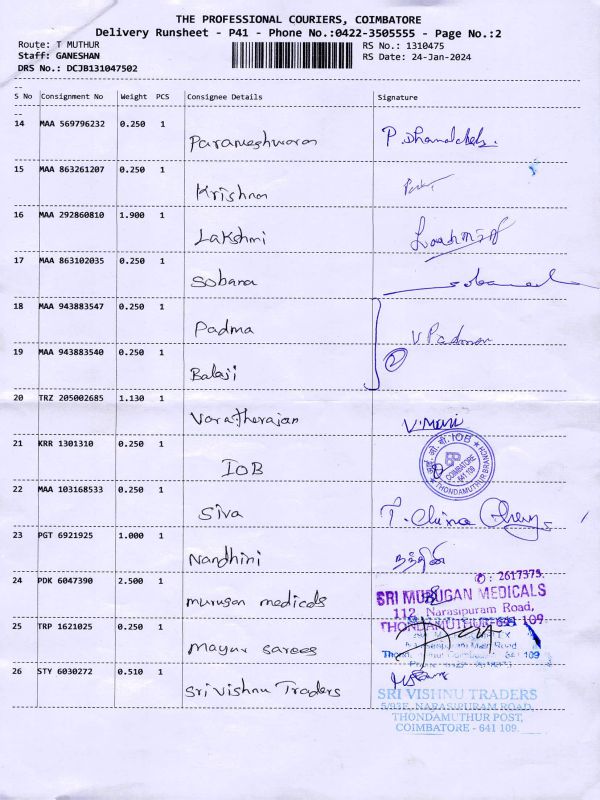 THE PROFESSIONAL COURIERS, COIMBATORE
Delivery Runsheet - P41 - Phone No.:0422-3505555 - Page No.:2
Route: T MUTHUR RS No.: 1310475
Staff: GANESHAN RS Date: 24-Jan-2024
DRS No.: DCJB131047502
S No Consignment No Weight PCS Consignee Details Signature
14 MAA 569796232 0.250 1
Parameshwaran
15 MAA 863261207 0.250 1
Krishnan
16 MAA 292860810 1.900 1
Lakshmi
17 MAA 863102035 0.250 1
Sobana
18 MAA 943883547 0.250 1
Padma V Padman
19 MAA 943883540 0.250 1
Balaji 2
20 TRZ 205002685 1.130 1
Voratherajan V. Mani
21 KRR 1301310 0.250 1
IOB
IOB
COIMBATORE
641 109
THONDAMUTHUR BRANCH
22 MAA 103168533 0.250 1
Siva
23 PGT 6921925 1.000 1
Nandhini நந்தினி
24 PDK 6047390 2.500 1 ✆: 2617373.
murugan medicals SRI MURUGAN MEDICALS
112, Narasipuram Road,
THONDAMUTHUR-641 109
25 TRP 1621025 0.250 1
mayur sarees
641 109
26 STY 6030272 0.510 1
Sri Vishnu Traders SRI VISHNU TRADERS
5/93E, NARASIPURAM ROAD,
THONDAMUTHUR POST,
COIMBATORE - 641 109.